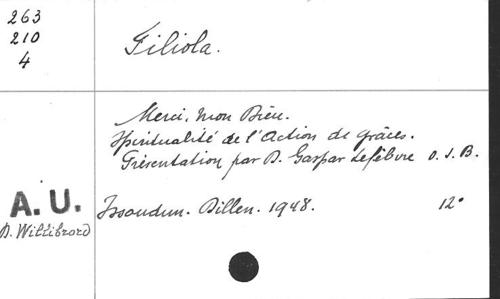 263
210
4
Filiola.
Merci, mon Dieu.
Spiritualité de l'Action de grâces.
Présentation par D. Gaspar Lefèbvre O.S.B.
A. U.
D. Willibrord
Issoudun. Dillen. 1948. 12°